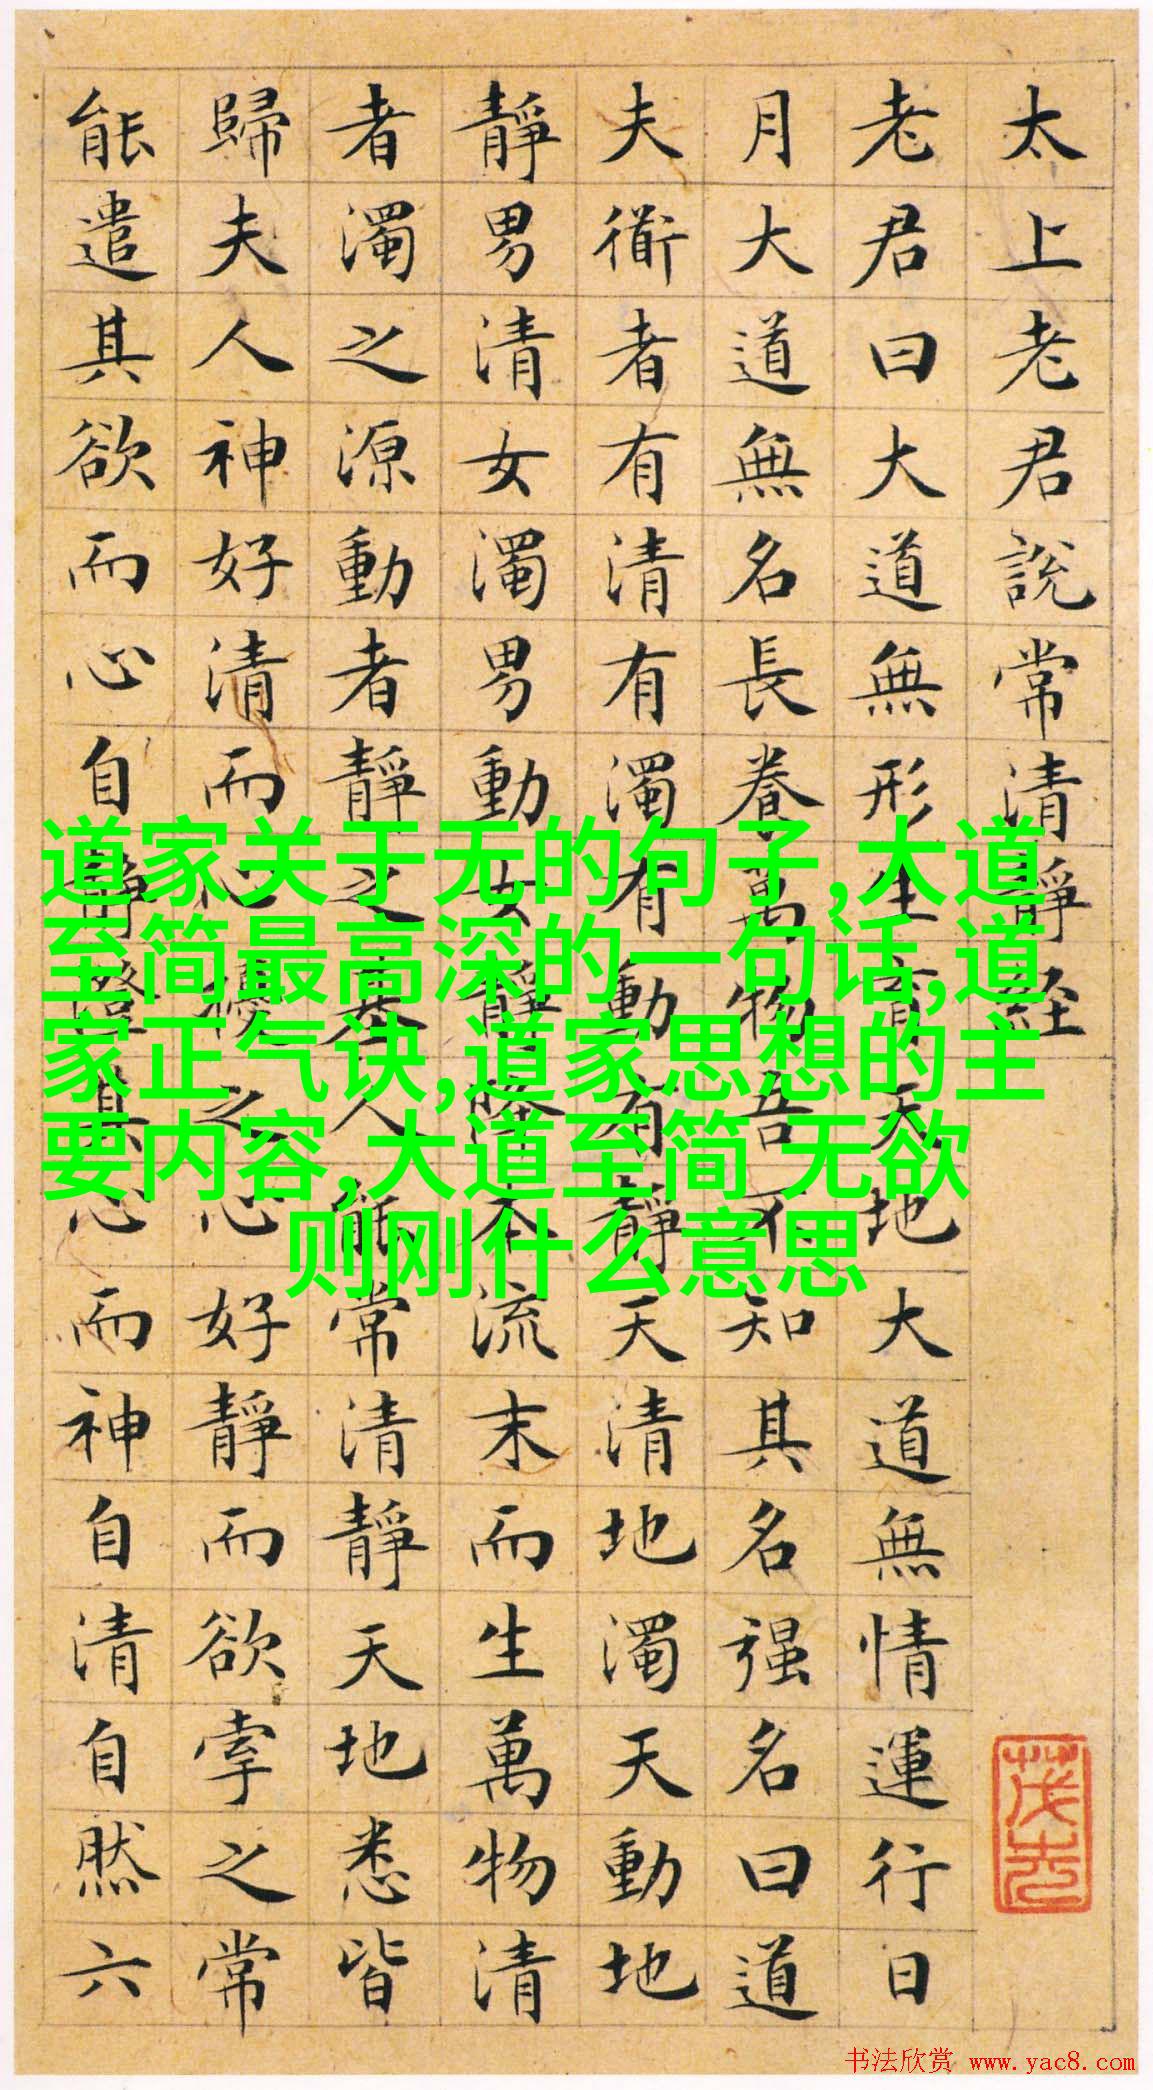 太上老君說常清靜経
老君曰大道無形生育天地大道無情運行日
月大道無名長養萬物吾不知其名强名曰道
夫衜者有清有濁有動有靜天清地濁天動地
靜男清女濁男動女靜降本流末而生萬物清
者濁之源動者靜之基人能常清靜天地悉皆
歸夫人神好清而心擾之心好靜而欲牽之常
能遣其欲而心自靜澄其心而神自清自然六
道家关于无的句子,大道
至简最高深的一句话,道
家正气诀,道家思想的主
要内容,大道至简 无欲
则刚什么意思
书法欣赏 www.yac8.com